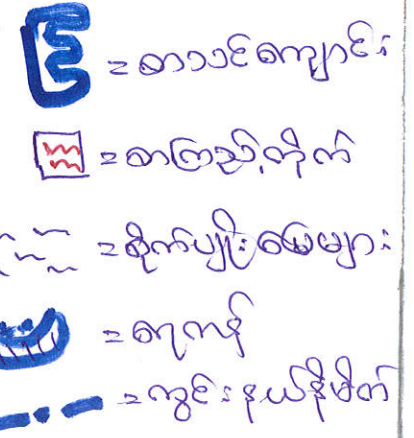 = စာသင်ကျောင်း
= စာကြည့်တိုက်
= စိုက်ပျိုးမြေများ
= ရေကန်
= ကွင်းနယ်နိမိတ်